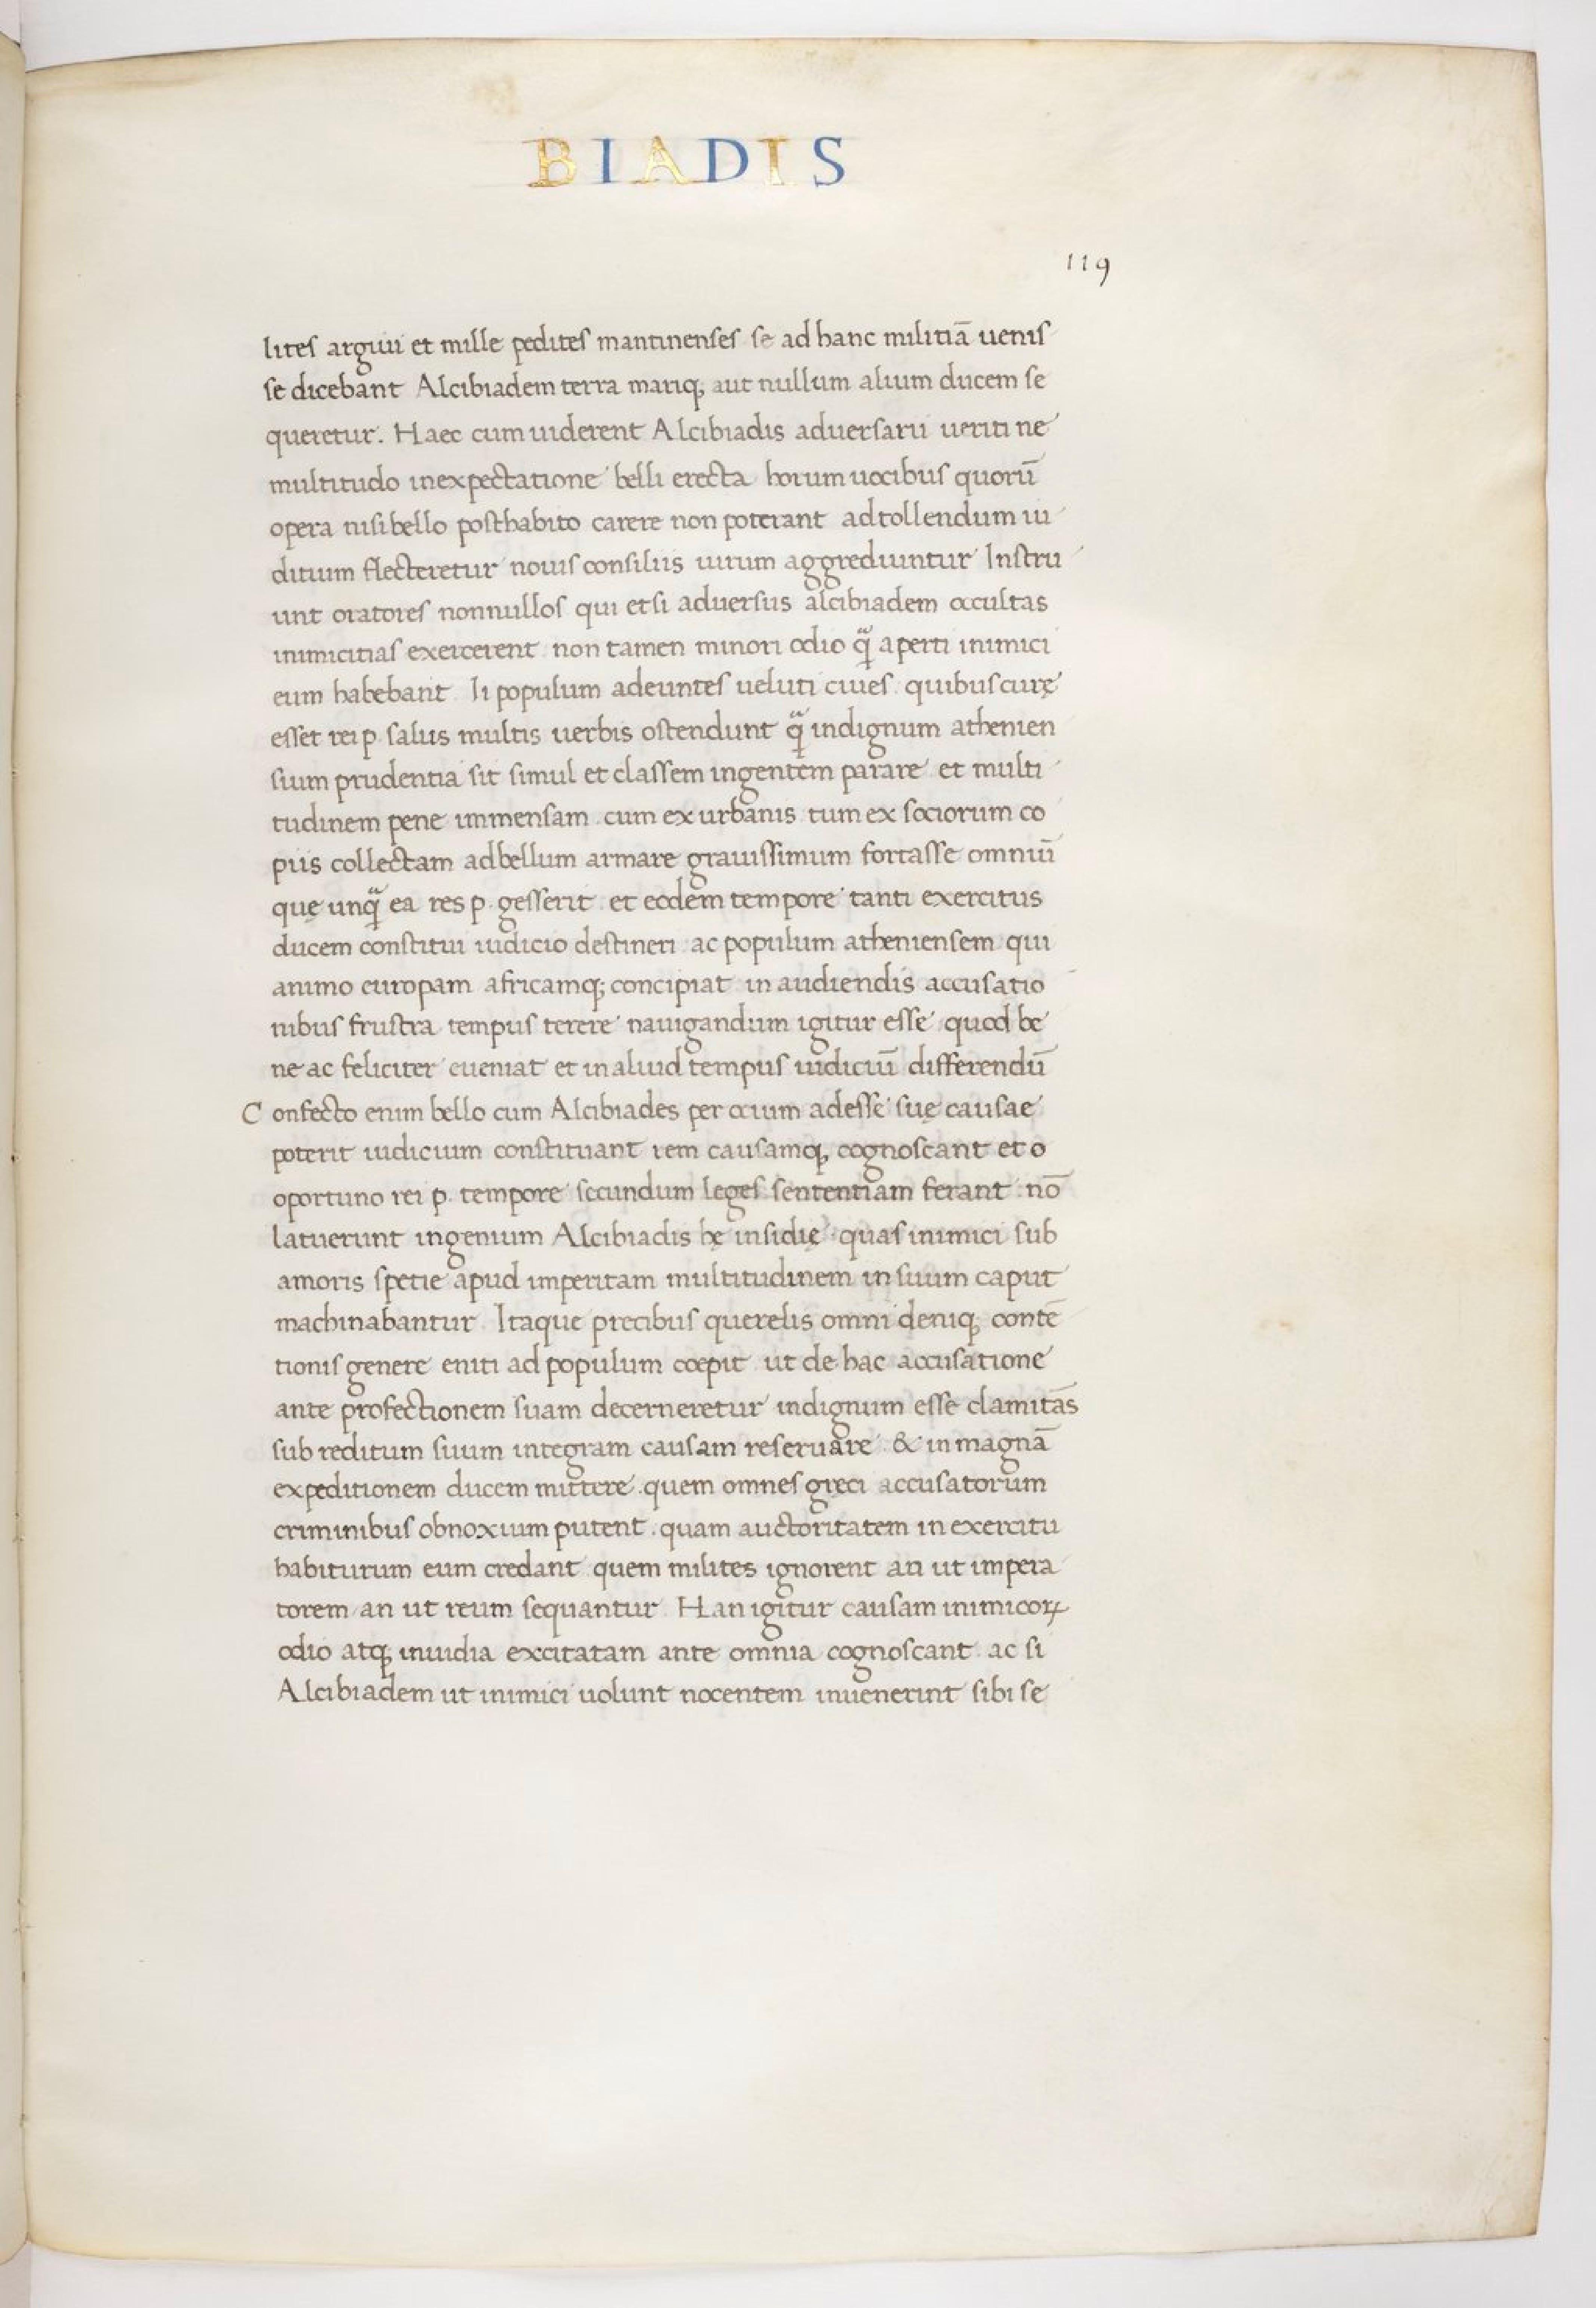 BIADIS
119
lites arguii et mille pedites mantinenses se ad hanc militiā uenis
se dicebant Alcibiadem terra mariq; aut nullum alium ducem se
queretur. Haec cum uiderent Alcibiadis aduersarii ueriti ne
multitudo inexpectatione belli erecta horum uocibus quorū
opera nisi bello posthabito carere non poterant ad tollendum iu
ditium flecteretur nouis consiliis uirum aggrediuntur Instru
unt oratores nonnullos qui etsi aduersus alcibiadem occultas
inimicitias exercerent non tamen minori odio q̃ aperti inimici
eum habebant Ii populum adeuntes ueluti ciues quibus curę
esset rei p. salus multis uerbis ostendunt q̃ indignum athenien
sium prudentia sit simul et classem ingentem parare et multi
tudinem pene immensam cum ex urbanis tum ex sociorum co
piis collectam ad bellum armare grauissimum fortasse omniū
quę unq̃ ea res p. gesserit et eodem tempore tanti exercitus
ducem constitui iudicio destineri ac populum atheniensem qui
animo europam africamq; concipiat in audiendis accusatio
nibus frustra tempus terere nauigandum igitur esse quod be
ne ac feliciter eueniat et in aliud tempus iudiciū differendū
Confecto enim bello cum Alcibiades per ocium adesse suę causae
poterit iudicium constituant rem causamq; cognoscant et o
oportuno rei p. tempore secundum leges sententiam ferant nō
latuerunt ingenium Alcibiadis hę insidię quas inimici sub
amoris spetie apud imperitam multitudinem in suum caput
machinabantur Itaque precibus querelis omni deniq; contē
tionis genere eniti ad populum coepit ut de hac accusatione
ante profectionem suam decerneretur indignum esse clamitās
sub reditum suum integram causam reseruare & in magnā
expeditionem ducem mittere quem omnes gręci accusatorum
criminibus obnoxium putent quam auctoritatem in exercitu
habiturum eum credant quem milites ignorent an ut impera
torem an ut reum sequantur Han igitur causam inimicoꝝ
odio atq; inuidia excitatam ante omnia cognoscant ac si
Alcibiadem ut inimici uolunt nocentem inuenerint sibi se